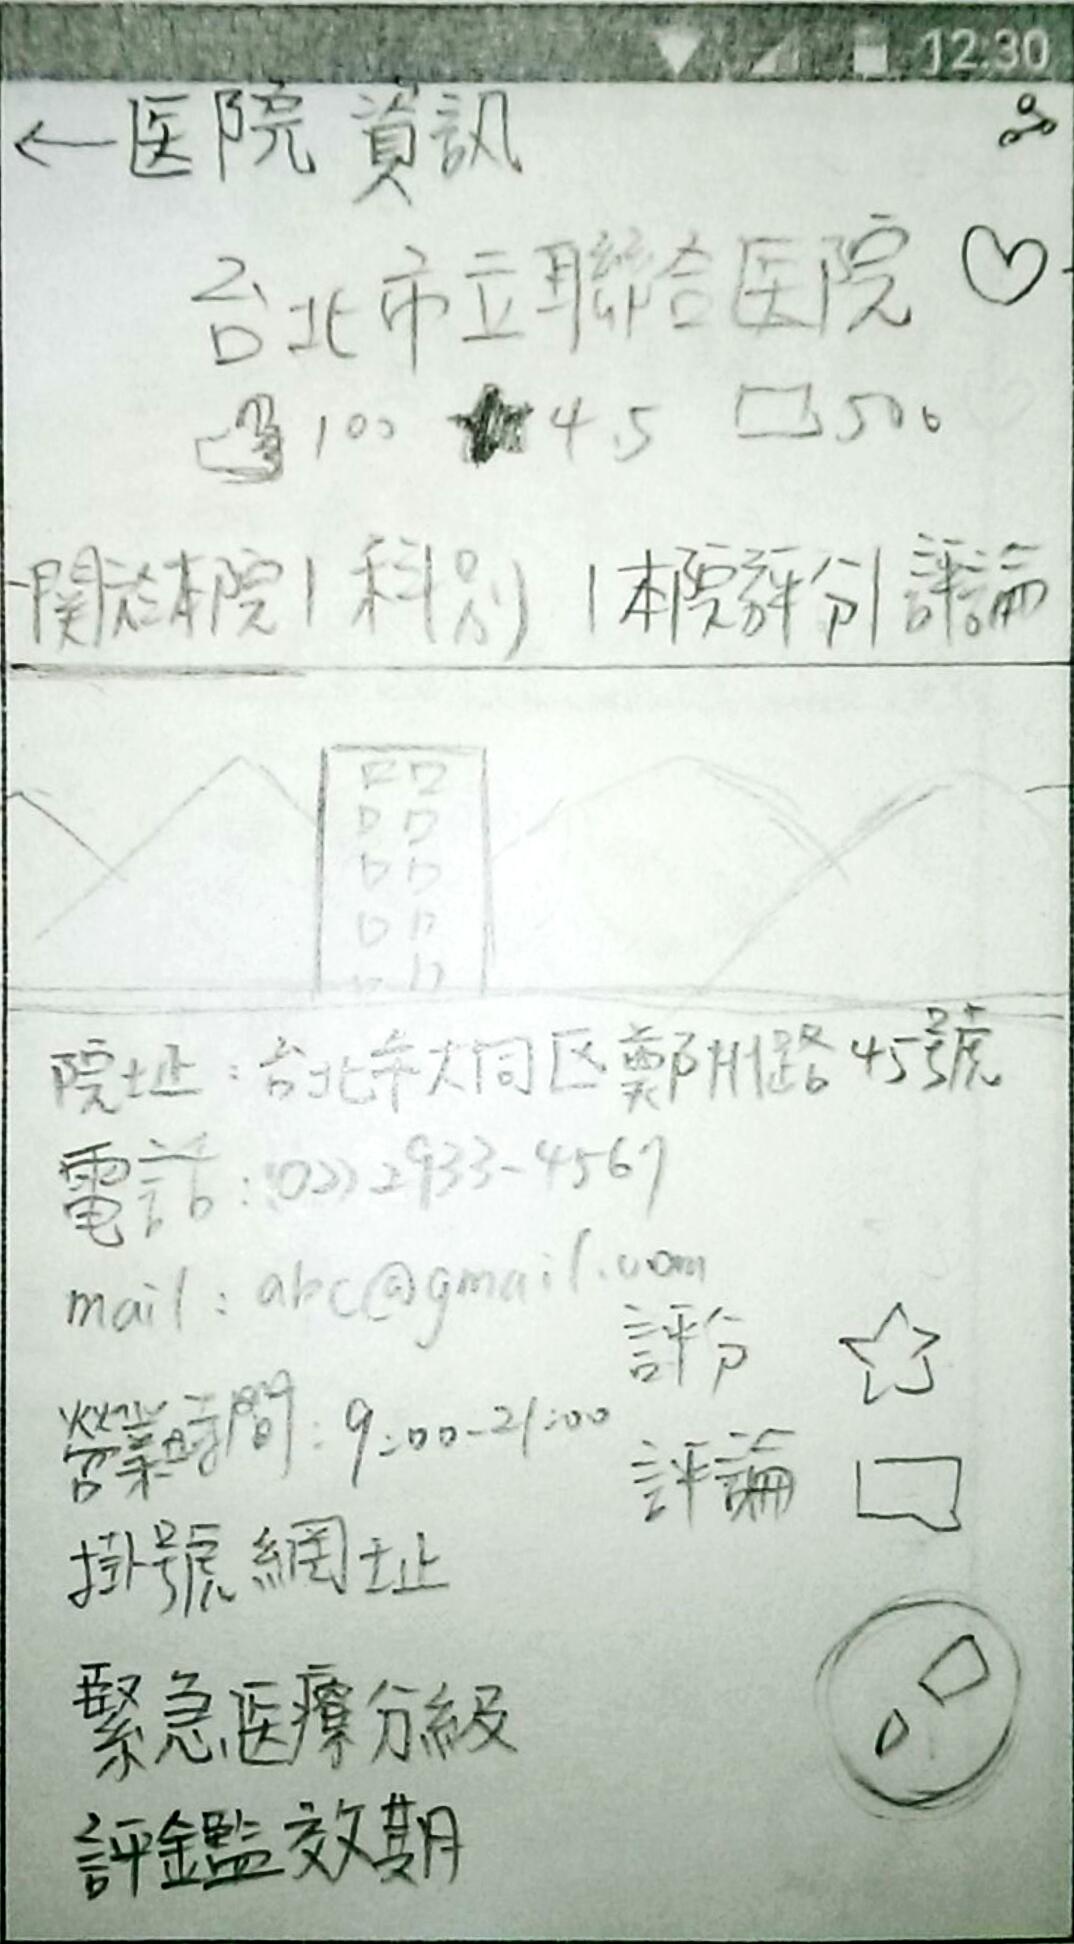 12:30
←医院 資訊
台北市立聯合医院
100 4.5 500
関於本院 | 科別 | 本院評分 | 評論
院址：台北市大同区鄭州路45號
電話：(02)2933-4567
mail：abc@gmail.com
評分
營業時間：9:00-21:00
評論
掛號網址
緊急医療分級
評鑑效期